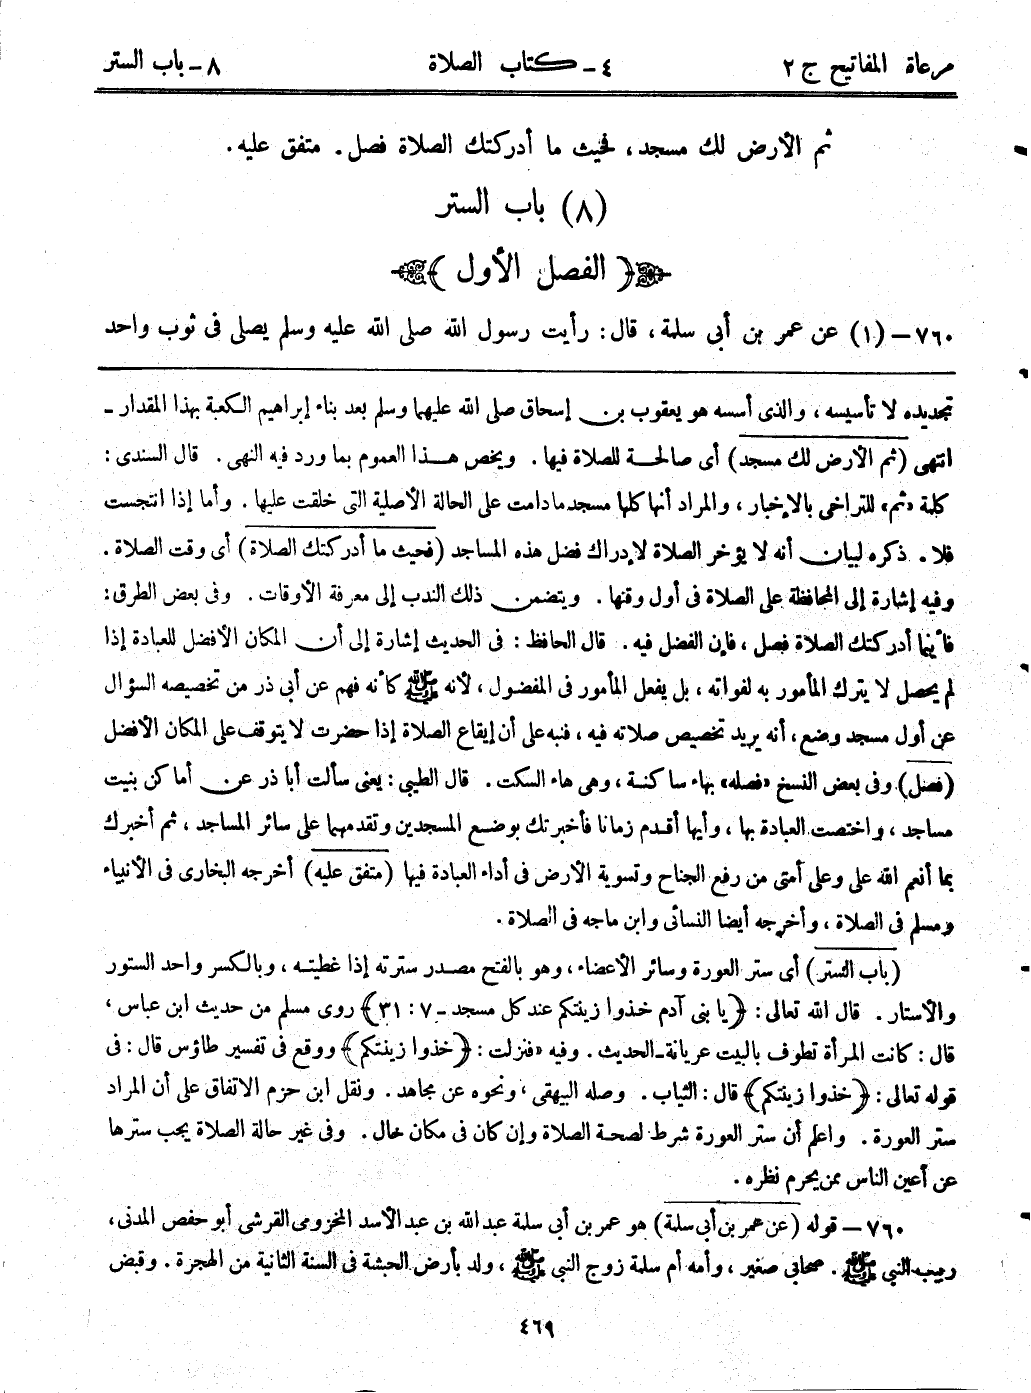 مرعاة المفاتيح ج ٢
٤ - كتاب الصلاة
٨ - باب الستر
ثم الأرض لك مسجد، فحيث ما أدركتك الصلاة فصل. متفق عليه.
(٨) باب الستر
﴿ الفصل الأول ﴾
٧٦٠ - (١) عن عمر بن أبي سلمة، قال: رأيت رسول الله صلى الله عليه وسلم يصلى فى ثوب واحد
تجديده لا تأسيسه، والذى أسسه هو يعقوب بن إسحاق صلى الله عليهما وسلم بعد بناء إبراهيم الكعبة بهذا المقدار -
انتهى (ثم الأرض لك مسجد) أى صالحة للصلاة فيها. ويخص هذا العموم بما ورد فيه النهى. قال السندى:
كلمة «ثم» للتراخى بالإخبار، والمراد أنها كلها مسجد مادامت على الحالة الأصلية التى خلقت عليها. وأما إذا انتجست
فلا. ذكره لبيان أنه لا يؤخر الصلاة لإدراك فضل هذه المساجد (فحيث ما أدركتك الصلاة) أى وقت الصلاة.
وفيه إشارة إلى المحافظة على الصلاة فى أول وقتها. ويتضمن ذلك الندب إلى معرفة الأوقات. وفى بعض الطرق:
فأينما أدركتك الصلاة فصل، فإن الفضل فيه. قال الحافظ: فى الحديث إشارة إلى أن المكان الأفضل للعبادة إذا
لم يحصل لا يترك المأمور به لفواته، بل يفعل المأمور فى المفضول، لأنه ﷺ كأنه فهم عن أبي ذر من تخصيصه السؤال
عن أول مسجد وضع، أنه يريد تخصيص صلاته فيه، فنبه على أن إيقاع الصلاة إذا حضرت لا يتوقف على المكان الأفضل
(فصل) وفى بعض النسخ «فصله» بهاء ساكنة، وهى هاء السكت. قال الطيبى: يعنى سألت أبا ذر عن أماكن بنيت
مساجد، واختصت العبادة بها، وأيها أقدم زمانا فأخبرتك بوضع المسجدين وتقدمهما على سائر المساجد، ثم أخبرك
بما أنعم الله على وعلى أمتى من رفع الجناح وتسوية الأرض فى أداء العبادة فيها (متفق عليه) أخرجه البخارى فى الأنبياء
ومسلم فى الصلاة، وأخرجه أيضا النسائى وابن ماجه فى الصلاة.
(باب الستر) أى ستر العورة وسائر الأعضاء، وهو بالفتح مصدر سترته إذا غطيته، وبالكسر واحد الستور
والأستار. قال الله تعالى: ﴿يا بنى آدم خذوا زينتكم عند كل مسجد - ٧: ٣١﴾ روى مسلم من حديث ابن عباس،
قال: كانت المرأة تطوف بالبيت عريانة - الحديث. وفيه «فنزلت: ﴿خذوا زينتكم﴾ ووقع فى تفسير طاؤس قال: فى
قوله تعالى: ﴿خذوا زينتكم﴾ قال: الثياب. وصله البيهقى، ونحوه عن مجاهد. ونقل ابن حزم الاتفاق على أن المراد
ستر العورة. واعلم أن ستر العورة شرط لصحة الصلاة وإن كان فى مكان خال. وفى غير حالة الصلاة يجب سترها
عن أعين الناس ممن يحرم نظره.
٧٦٠ - قوله (عن عمر بن أبى سلمة) هو عمر بن أبى سلمة عبد الله بن عبد الأسد المخزومى القرشى أبو حفص المدنى،
ربيب النبى ﷺ. صحابى صغير، وأمه أم سلمة زوج النبى ﷺ، ولد بأرض الحبشة فى السنة الثانية من الهجرة. وقبض
٤٦٩